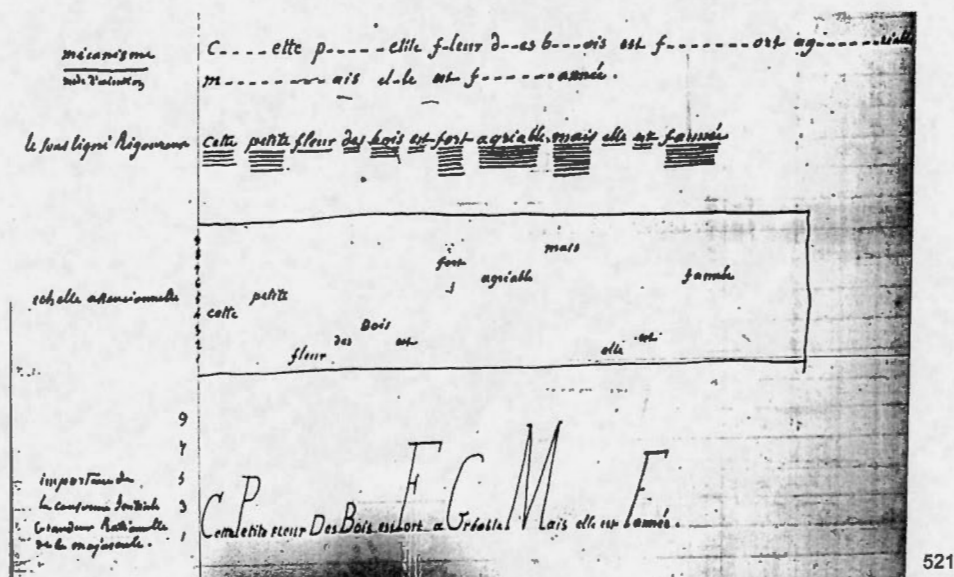 mécanisme
C----ette p-----etite f-leur d--es b---ois est f-------ort ag-------réable
m--------ais el-le est f-------année.
le sous ligné Rigoureux cette petite fleur des bois est fort agréable, mais elle est fannée
mais
fort
agriable
fannée
petite
echelle
cette
Dois
des est est
fleur elle
9
7
5
3
1
importance de
la consonne Initiale
Grandeur Rationelle
de la majuscule.
Cette Petite Fleur Des Bois est Fort aGréable Mais elle est Fannée.
521